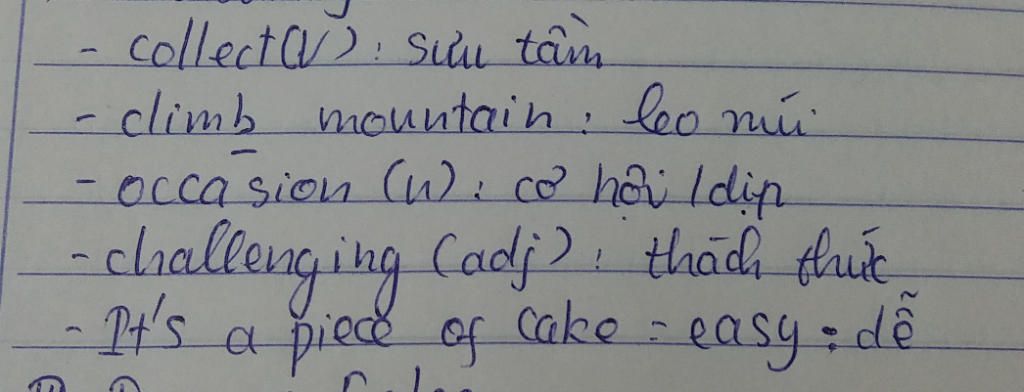 - collect(V): sưu tầm
- climb mountain: leo núi
- occasion (n): cơ hội / dịp
- challenging (adj): thách thức
- It's a piece of cake = easy: dễ